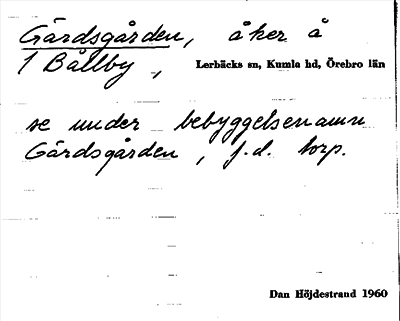 Gärdsgården, åker å
1 Bållby, Lerbäcks sn, Kumla hd, Örebro län
se under bebyggelsenamn
Gärdsgården, f.d. torp.
Dan Höjdestrand 1960